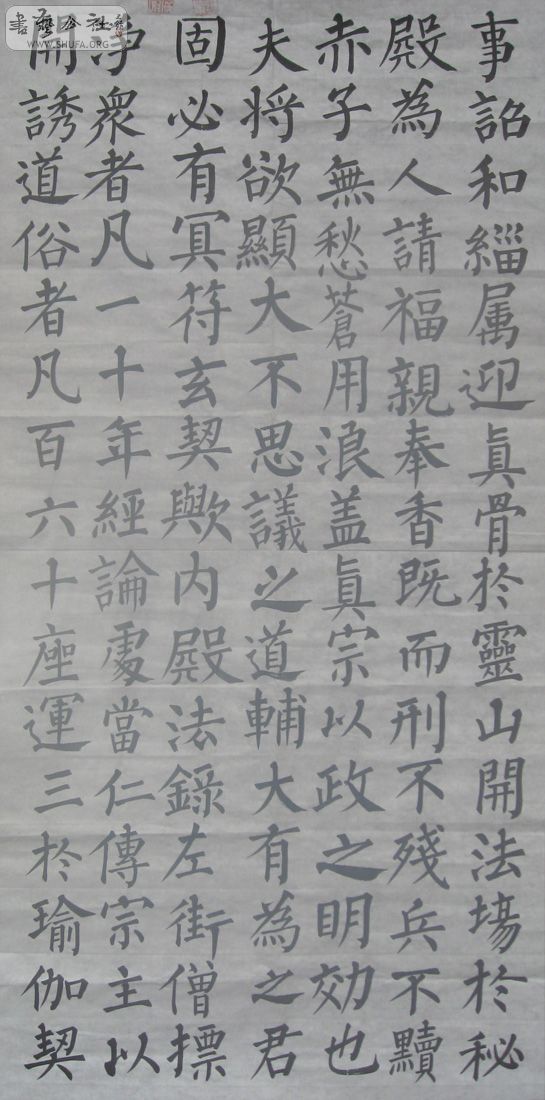 事詔和緇属迎眞骨於靈山開法場於秘
殿為人請福親奉香既而刑不殘兵不黷
赤子無愁蒼用浪盖眞宗以政之明効也
夫将欲顯大不思議之道輔大有為之君
固必有冥符玄契歟内殿法錄左街僧摽
净眾者凡一十年經論處當仁傳宗主以
開誘道俗者凡百六十座運三於瑜伽契
書藝公社
WWW.SHUFA.ORG